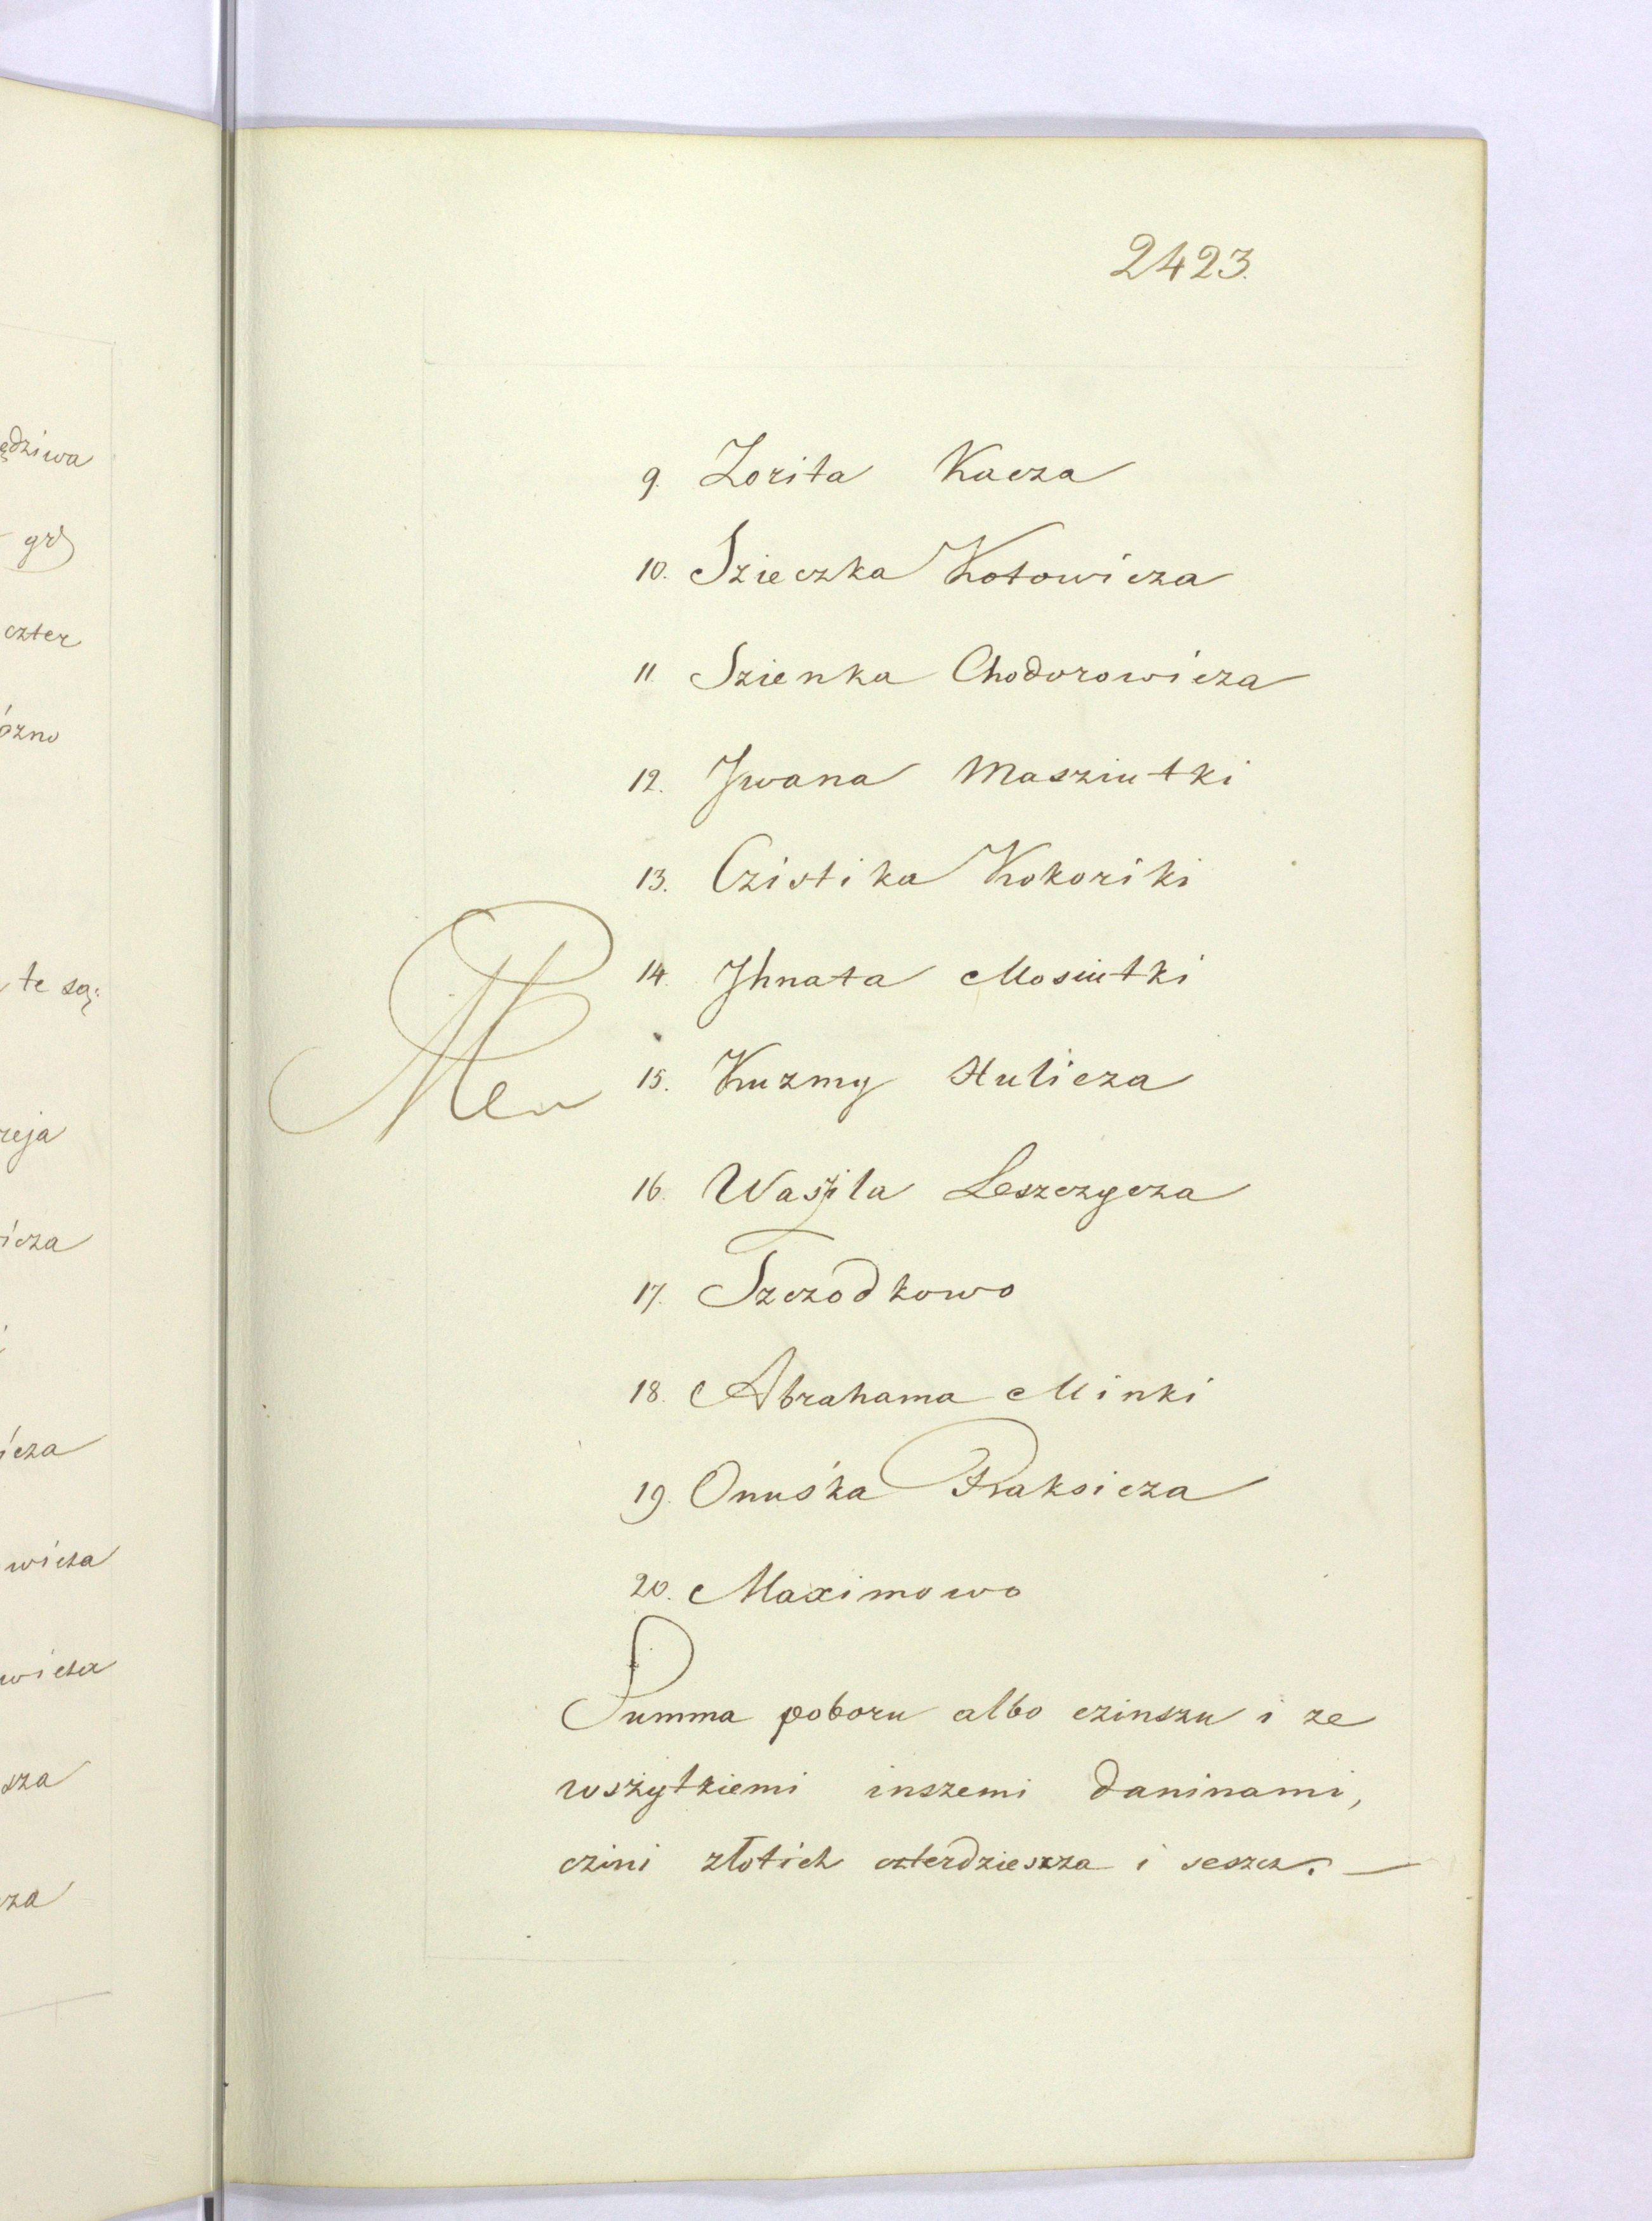 ędziwa
gr
czter
óżno
te są:
reja
icza
icza
wicza
wicza
sza
cza
2423.
9. Zorita Kacza
10. Szieczka Kotowicza
11 Szienka Chodorowicza
12. Jwana Masziutki
13. Czistika Kokoriki
14. Jhnata Mosiutki
15. Kuzmy Hulicza
16. Waszila Leszczycza
17. Szczodkowo
18. Abrahama Minki
19. Onuśka Praksicza
20. Maximowo
Summa poboru albo czinszu i ze
wszytkiemi inszemi daninami,
czini złotich czterdziesza i seszcz. —